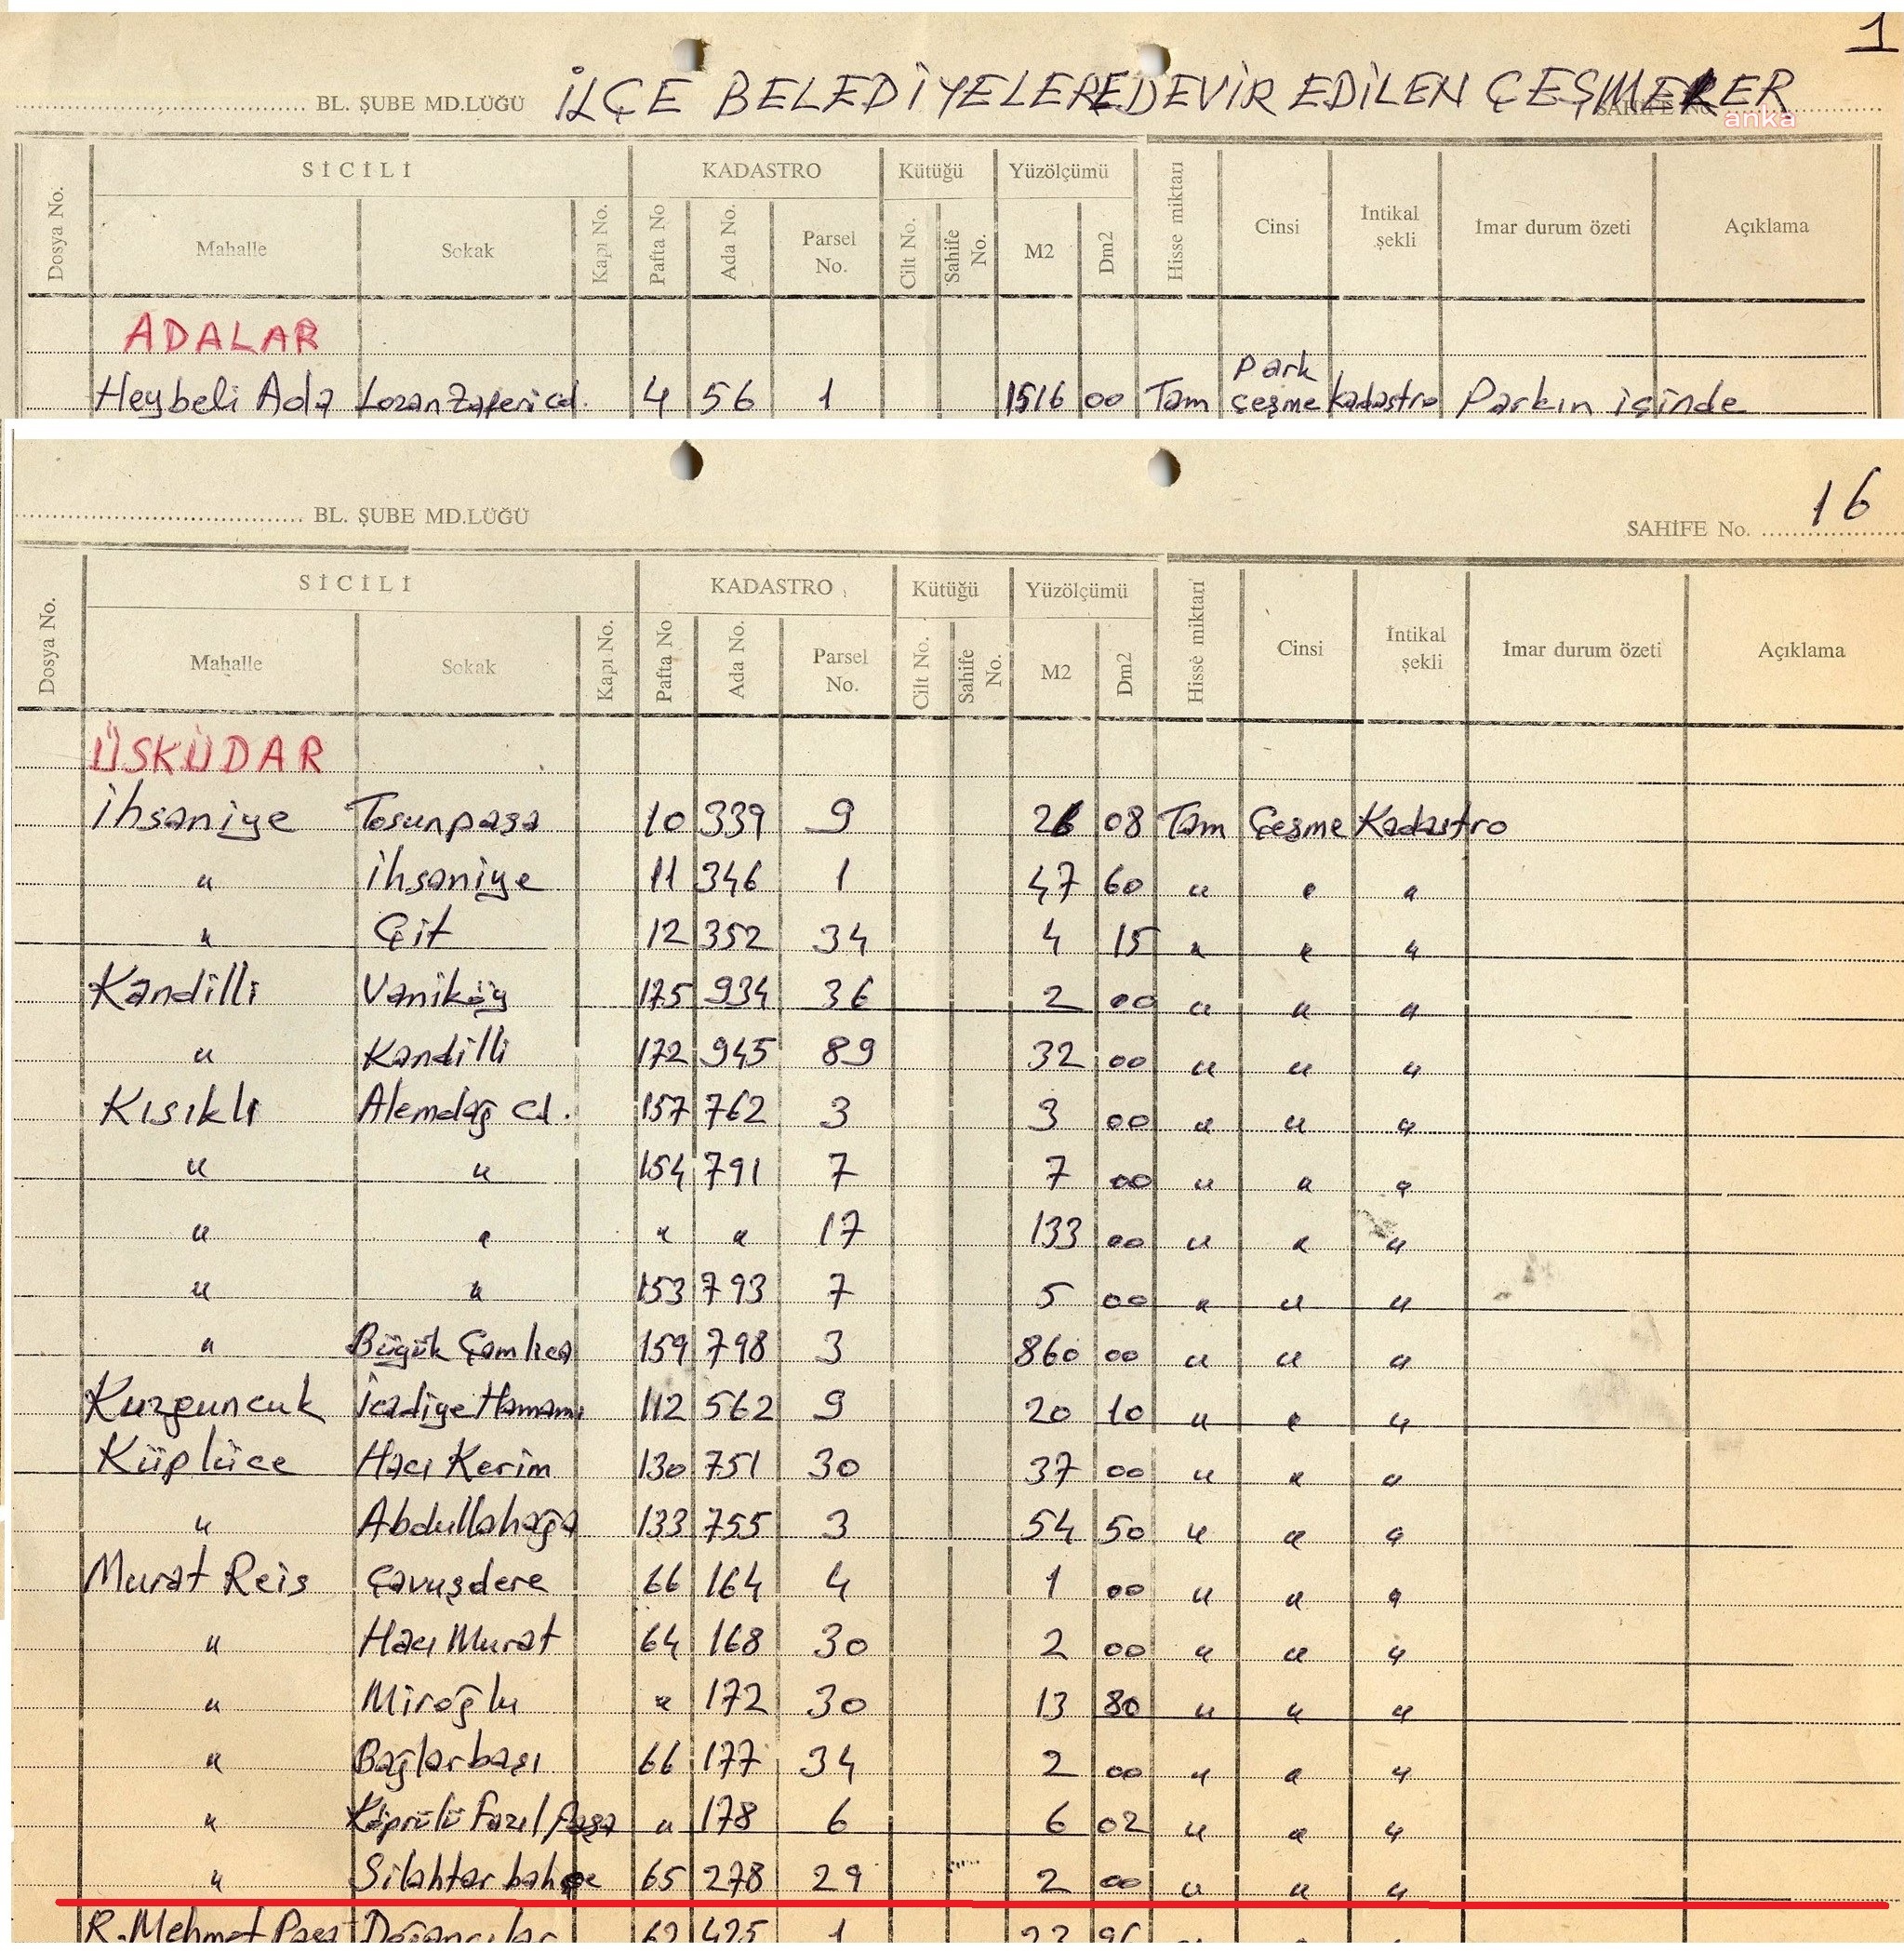 1
BL. ŞUBE MD.LÜĞÜ İLÇE BELEDİYELERE DEVİR EDİLEN ÇEŞMELER SAHİFE No.
anka
Dosya No. SİCİLİ KADASTRO Kütüğü Yüzölçümü Hisse miktarı Cinsi İntikal şekli İmar durum özeti Açıklama
Mahalle Sokak Kapı No. Pafta No Ada No. Parsel No. Cilt No. Sahife No. M2 Dm2
ADALAR
Heybeli Ada Lozan Zaferi cd. 4 56 1 1516 00 Tam Park Çeşme Kadastro Parkın içinde
BL. ŞUBE MD.LÜĞÜ SAHİFE No. 16
Dosya No. SİCİLİ KADASTRO Kütüğü Yüzölçümü Hisse miktarı Cinsi İntikal şekli İmar durum özeti Açıklama
Mahalle Sokak Kapı No. Pafta No Ada No. Parsel No. Cilt No. Sahife No. M2 Dm2
ÜSKÜDAR
İhsaniye Tosunpaşa 10 339 9 08 Tam Çeşme Kadastro
" İhsaniye 11 346 1 47 60 " " "
" Çit 12 352 34 4 15 " " "
Kandilli Vaniköy 175 934 36 2 00 " " "
" Kandilli 172 945 89 32 00 " " "
Kısıklı Alemdağ Cd. 157 762 3 3 00 " " "
" " 154 791 7 7 00 " " "
" " " " 17 133 00 " " "
" " 153 793 7 5 00 " " "
" Büyük Çamlıca 159 798 3 860 00 " " "
Kuzguncuk İcadiye Hamamı 112 562 9 20 10 " " "
Küplüce Hacı Kerim 130 751 30 37 00 " " "
" Abdullahağa 133 755 3 54 50 " " "
Murat Reis Çavuşdere 66 164 4 1 00 " " "
" Hacı Murat 64 168 30 2 00 " " "
" Miroğlu " 172 30 13 80 " " "
" Bağlarbaşı 66 177 34 2 00 " " "
" Köprülü Fazıl Paşa " 178 6 6 02 " " "
" Silahtar bahçe 65 278 29 2 00 " " "
R. Mehmet Paşa Doğancılar 62 425 1